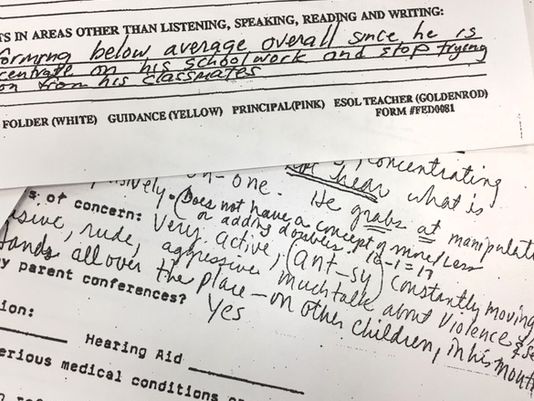 TS IN AREAS OTHER THAN LISTENING, SPEAKING, READING AND WRITING:
forming below average overall since he is
centrate on his schoolwork and stop trying
on from his classmates
FOLDER (WHITE) GUIDANCE (YELLOW) PRINCIPAL(PINK) ESOL TEACHER (GOLDENROD)
FORM #FED0081
concentrating
on-one. not hear what is
sively. He grabs at manipulati
s of concern: (Does not have a concept of more/less
or adding doubles. 10-1=17
sive, rude, Very active, (ant-sy) constantly moving
aggressive, much talk about violence & se
Hands all over the place - on other children, in his mout
ny parent conferences? Yes
ion:
Hearing Aid
erious medical conditions o